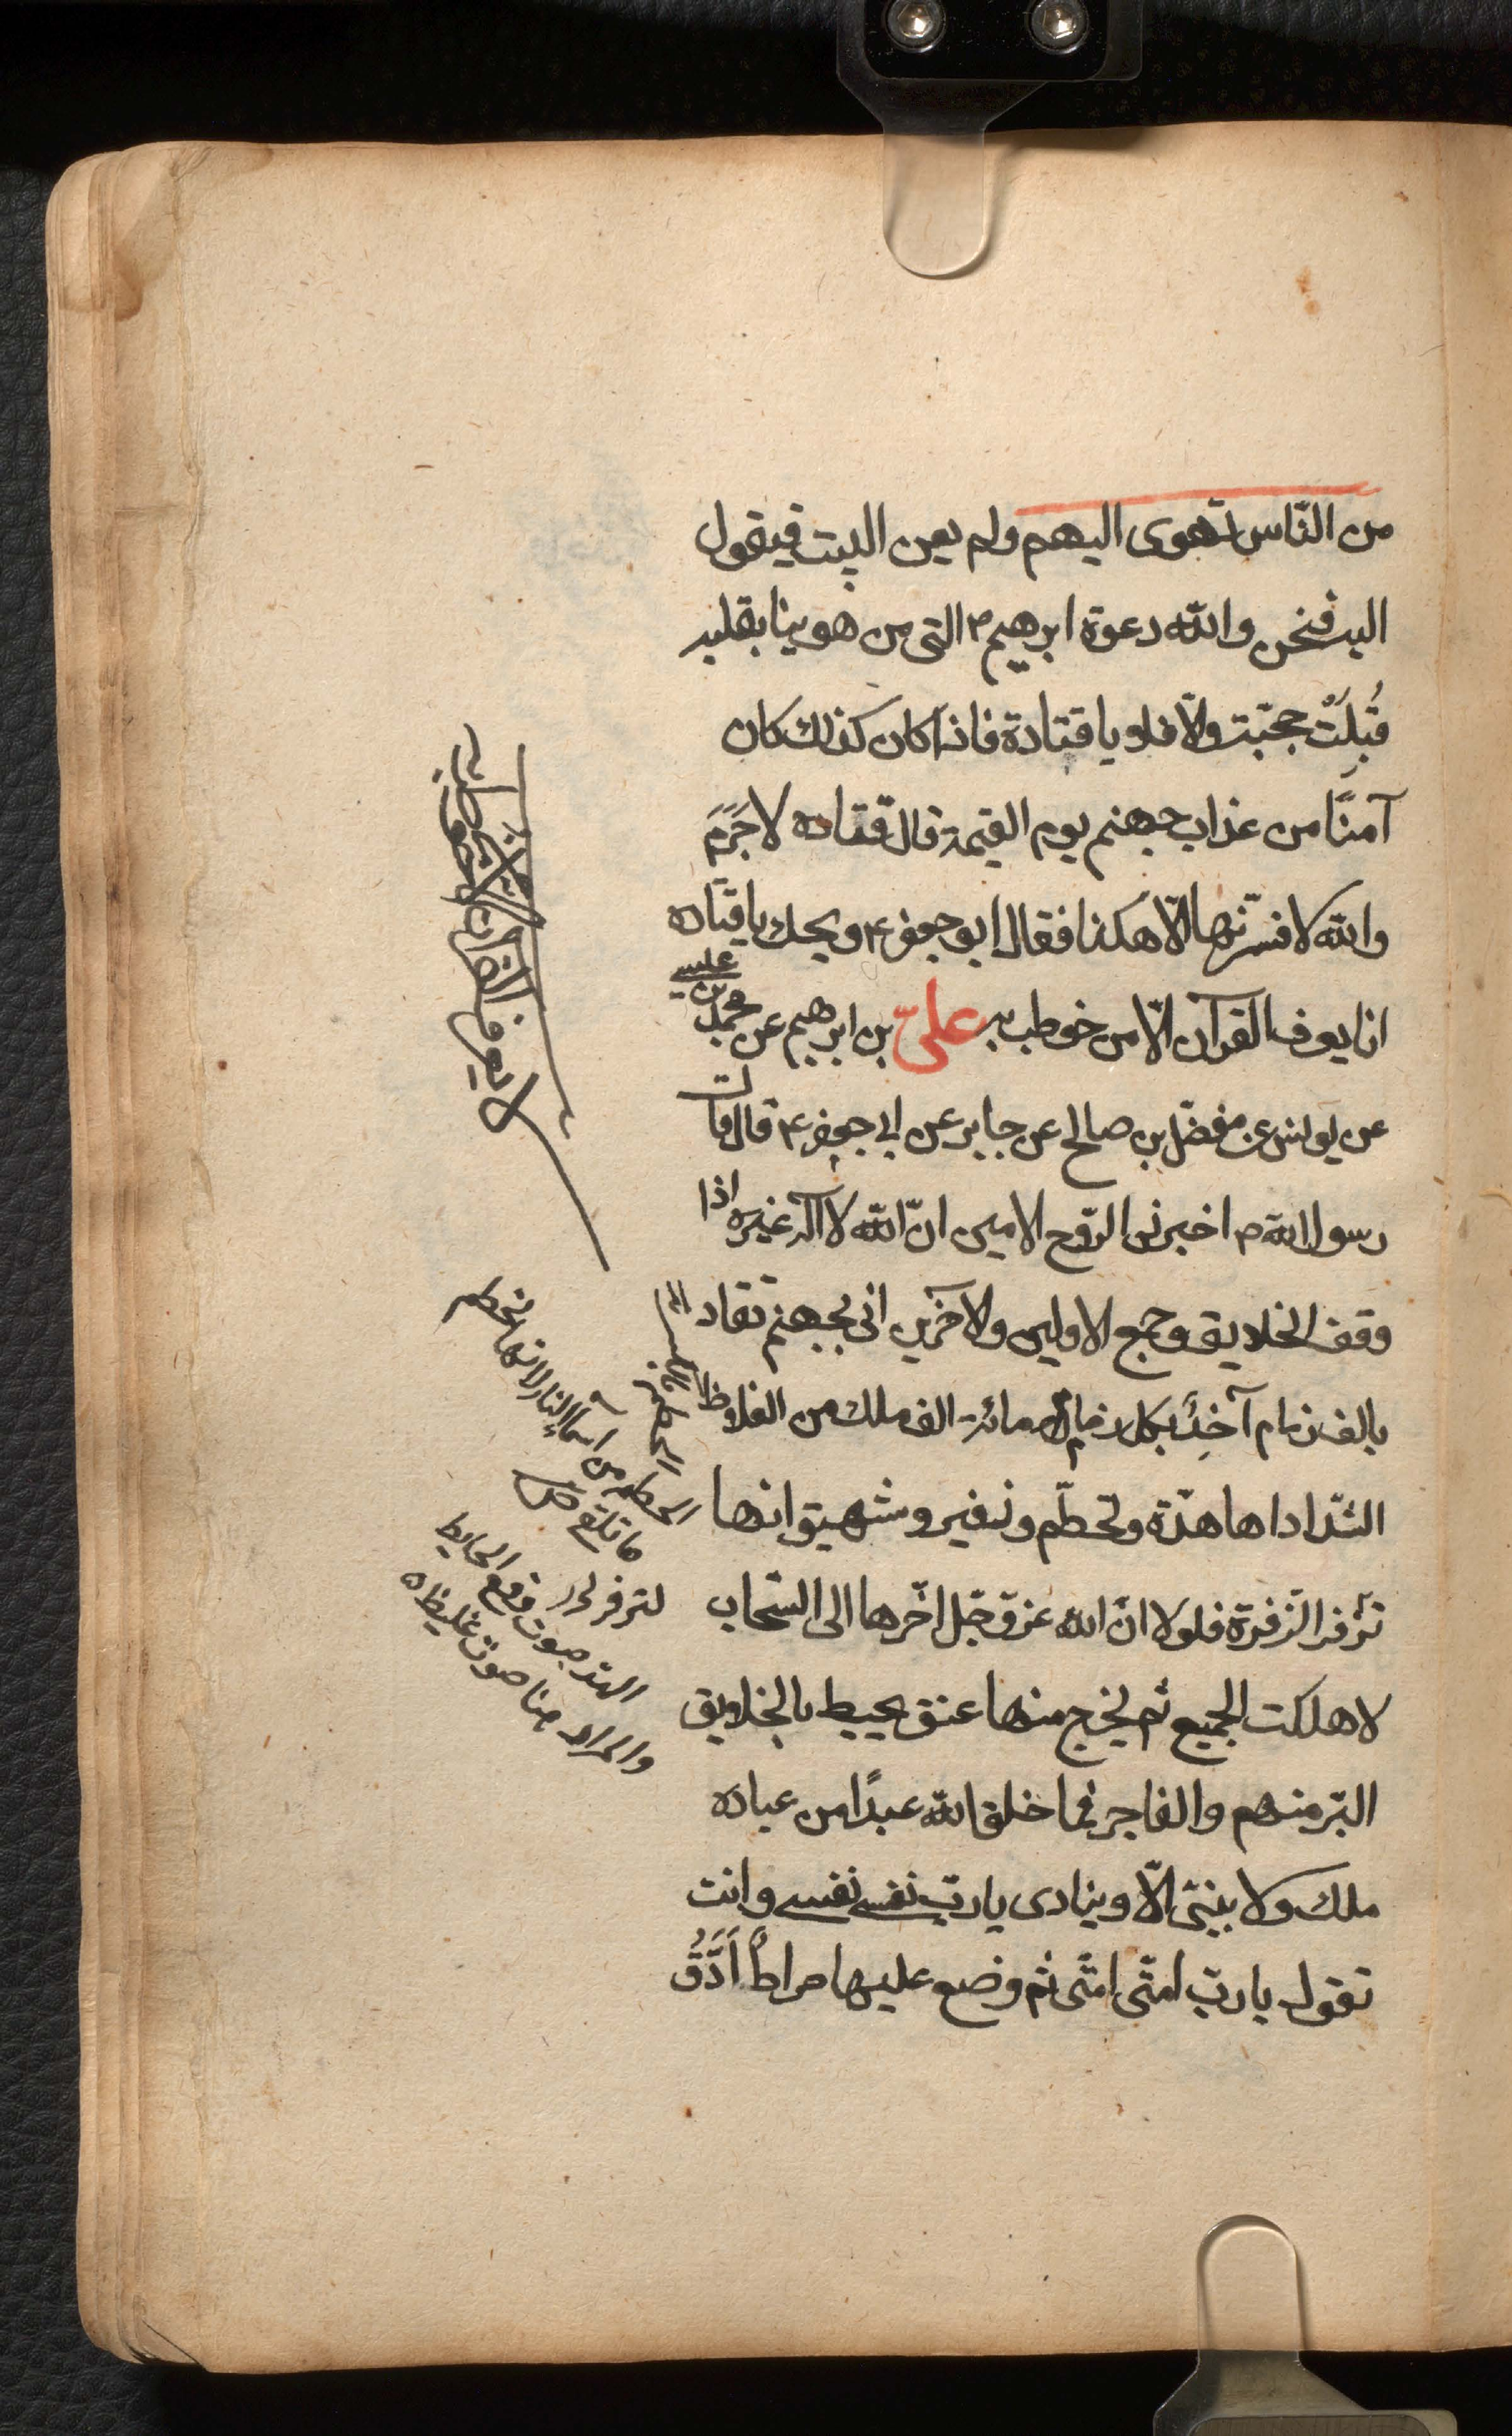 من النّاس تهوى اليهم ولم يعن البيت فيقول
اليه فنحن والله دعوة ابرهيم ۴ التى من هوينا بقلبه
قُبِلَتْ حجّته والّا فلا يا قتادة فاذا كان كذلك كان
آمنًا من عذاب جهنم يوم القيمة قال قتاده لا جَرَمَ
والله لا فسرتها الّا هكذا فقال ابو جعفر ۴ ويحك يا قتاده
انما يعرف القرآن الّا من خوطب به علىّ بن ابرهيم عن محمد بن عيسى
عن يونس عن مفضّل بن صالح عن جابر عن ابى جعفر ۴ قال قال
رسول الله ص اخبرنى الرّوح الامين انّ الله لا اله غيره اذا
وقف الخلايق وجمع الاولين والاخرين اتى بجهنم تقاد
بالف زمام آخذ بكل زمام مائة الف ملك من الغلاظ
الشّداد لها هدّة وتحطّم وزفير وشهيق وانها
تزفر الزّفرة فلولا انّ الله عز و جّل اخّرها الى السّحاب
لاهلكت الجميع ثم يخرج منها عنق يحيط بالخلايق
البّر منهم والفاجر فما خلق الله عبدًا من عباده
ملك ولا بنبىّ الّا وينادى يا ربّ نفسى نفسى وانت
تقول يا ربّ امتّى امتّى ثم وضع عليها صراطٌ اَدَقُّ
لا يعرف القرآن الا من خوطب به
الحطمه من اسماء النار لانها تحطم
ما تلقم ص
لتزفر
الهد صوت وقع الحايط
والمراد هنا صوت غليظ